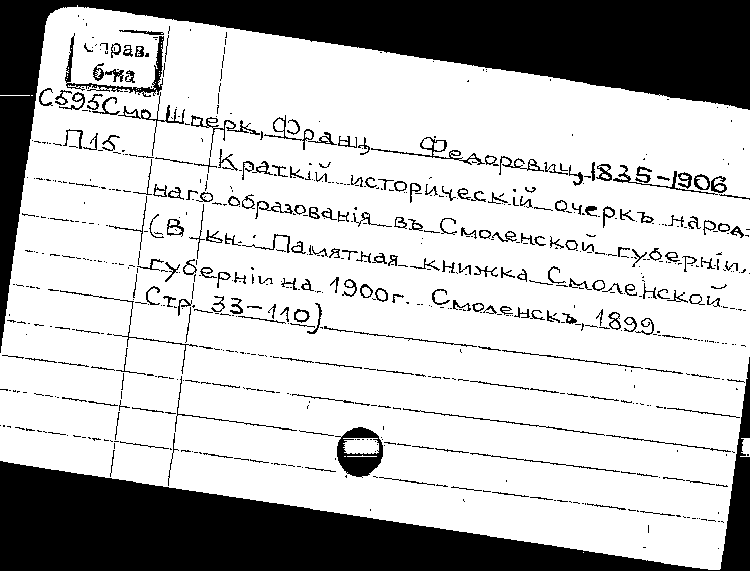 Справ.
б-ка
С595Смо Шперк, Франц Федорович, 1835-1906
П15. Краткій историческій очеркъ народ-
наго образованія въ Смоленской губерніи.
(В кн.: Памятная книжка Смоленской
губерніи на 1900г. Смоленскъ, 1899.
Стр. 33-110).